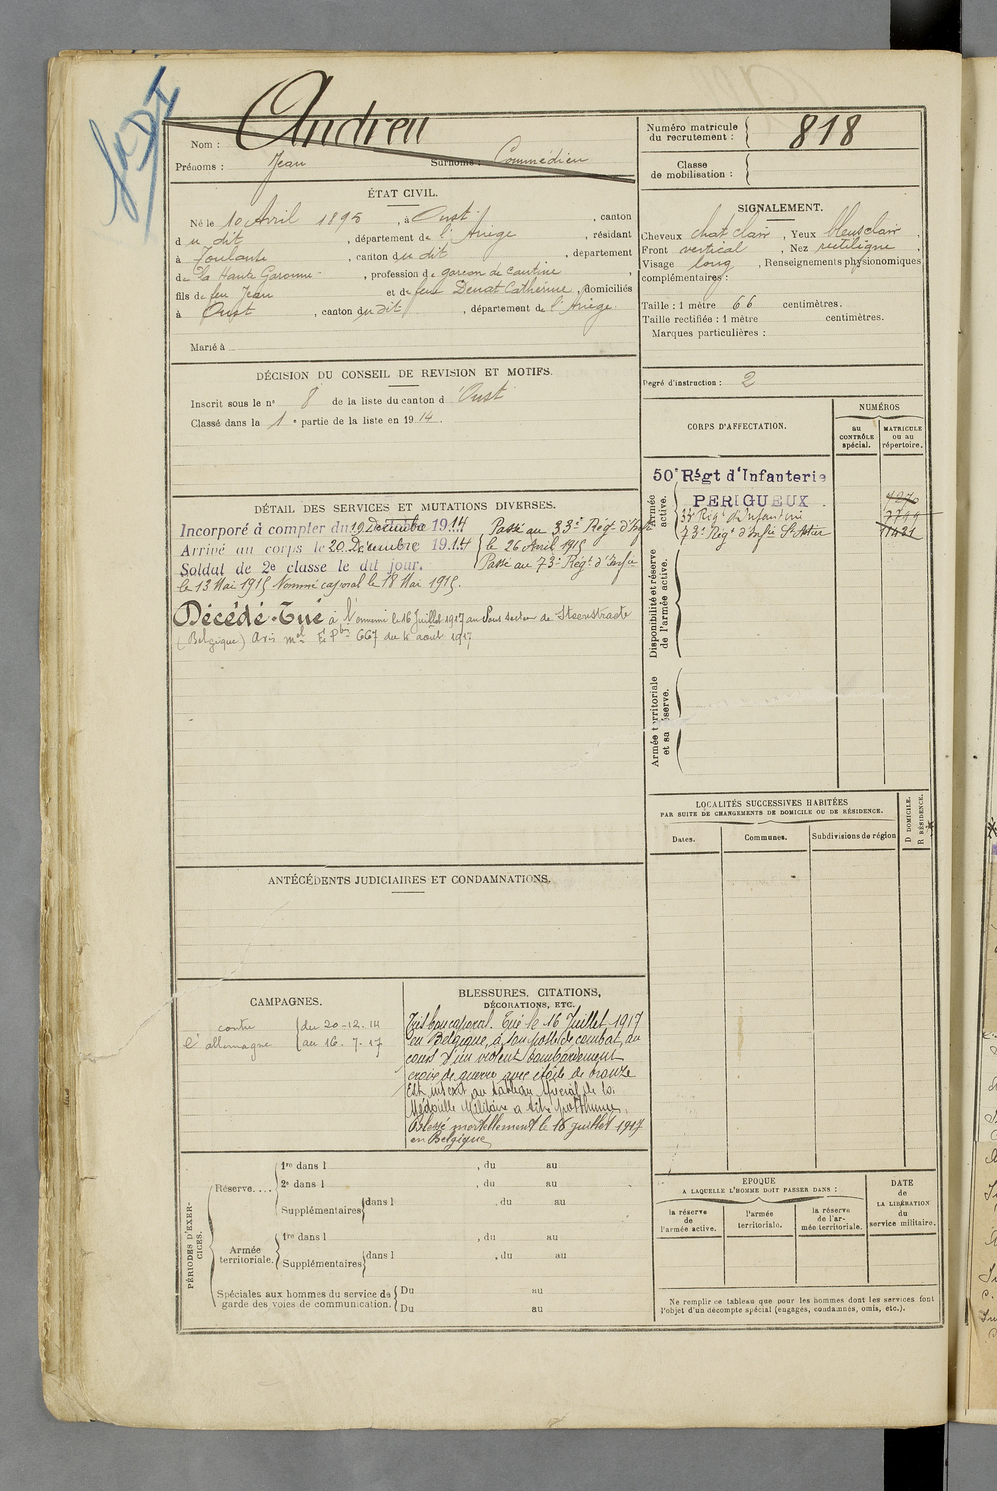 Nom : Andreu
Prénoms : Jean Surnoms : Commédieu
Numéro matricule du recrutement : 818
Classe de mobilisation :
ÉTAT CIVIL.
Né le 10 Avril 1895, à Oust, canton
du dit, département de l'Ariège, résidant
à Toulouse, canton du dit, département
de la Haute Garonne, profession de garcon de cantine,
fils de feu Jean et de feue Denat Catherine, domiciliés
à Oust, canton du dit, département de l'Ariège.
Marié à
SIGNALEMENT.
Cheveux chat clair, Yeux bleus clair,
Front vertical, Nez rectiligne
Visage long, Renseignements physionomiques
complémentaires :
Taille : 1 mètre 66 centimètres.
Taille rectifiée : 1 mètre centimètres.
Marques particulières :
Degré d'instruction : 2
DÉCISION DU CONSEIL DE REVISION ET MOTIFS.
Inscrit sous le n° 8 de la liste du canton d'Oust
Classé dans la 1e partie de la liste en 1914.
CORPS D'AFFECTATION.
NUMÉROS
au CONTRÔLE spécial.
MATRICULE ou au répertoire.
Armée active.
50e Régt d'Infanterie
PERIGUEUX
33e Régt d'Infanterie
73e Régt d'Infie
Disponibilité et réserve de l'armée active.
Armée territoriale et sa réserve.
DÉTAIL DES SERVICES ET MUTATIONS DIVERSES.
Incorporé à compter du 19 Décembre 1914 Passé au 33e Régt d'Infie
Arrivé au corps le 20 Décembre 1914 le 26 Avril 1915
Soldat de 2e classe le dit jour. Passé au 73e Régt d'Infie
le 13 Mai 1915 Nommé caporal le 18 Mai 1915.
Décédé. Tué à l'ennemi le 16 Juillet 1917 au Sous secteur de Steenstraate
(Belgique) Avis mel 667 du 4 aout 1917
LOCALITÉS SUCCESSIVES HABITÉES
PAR SUITE DE CHANGEMENTS DE DOMICILE OU DE RÉSIDENCE.
Dates. Communes. Subdivisions de région
D DOMICILE. R RÉSIDENCE.
ANTÉCÉDENTS JUDICIAIRES ET CONDAMNATIONS.
CAMPAGNES.
contre l'allemagne
du 20-12-14
au 16-7-17
BLESSURES, CITATIONS,
DÉCORATIONS, ETC.
Très bon caporal. Tué le 16 Juillet 1917
en Belgique, à son poste de combat, au
cours d'un violent bombardement
croix de guerre avec étoile de bronze
Est inscrit au tableau spécial de la
Médaille Militaire à titre posthume.
Blessé mortellement le 16 juillet 1917
en Belgique
PÉRIODES D'EXERCICES.
Réserve....
1re dans l , du au
2e dans l , du au
Supplémentaires dans l , du au
Armée territoriale.
1re dans l , du au
Supplémentaires dans l , du au
Spéciales aux hommes du service de garde des voies de communication.
Du au
Du au
EPOQUE
A LAQUELLE L'HOMME DOIT PASSER DANS :
la réserve de l'armée active.
l'armée territoriale.
la réserve de l'armée territoriale.
DATE de LA LIBÉRATION du service militaire.
Ne remplir ce tableau que pour les hommes dont les services font
l'objet d'un décompte spécial (engagés, condamnés, omis, etc.).